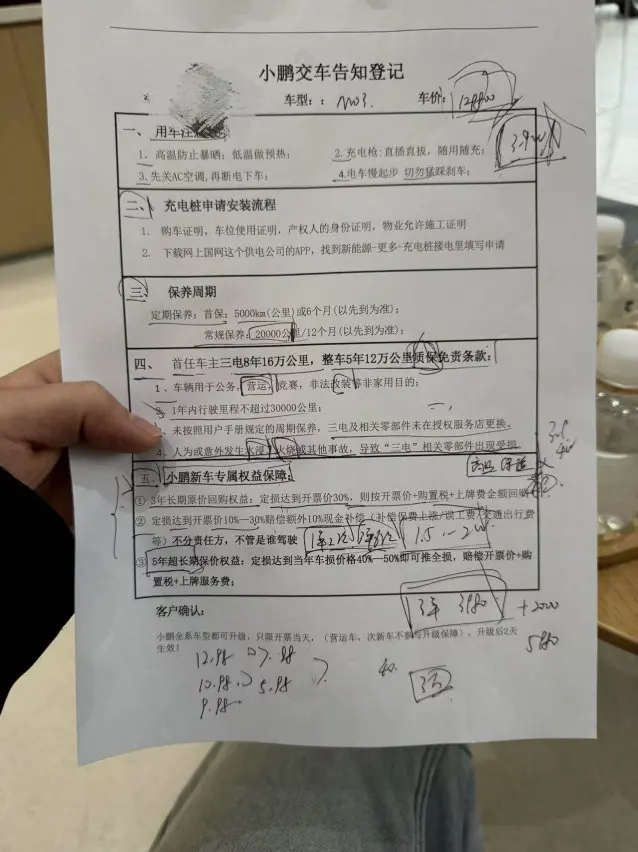 小鹏交车告知登记
车型：: M03. 车价: 129800
3.9w
一、 用车注
1. 高温防止暴晒；低温做预热； 2.充电枪:直插直拔，随用随充；
3.先关AC空调,再断电下车； 4.电车慢起步 切勿猛踩刹车；
二、 充电桩申请安装流程
1. 购车证明，车位使用证明，产权人的身份证明，物业允许施工证明
2. 下载网上国网这个供电公司的APP，找到新能源-更多-充电桩接电里填写申请
三 保养周期
定期保养：首保：5000km(公里)或6个月(以先到为准)；
常规保养：20000公里/12个月(以先到为准)；
四、 首任车主三电8年16万公里，整车5年12万公里质保免责条款：
1、车辆用于公务，营运，竞赛，非法改装等非家用目的；
1年内行驶里程不超过30000公里；
、未按照用户手册规定的周期保养，三电及相关零部件未在授权服务店更换。
4、人为或意外发生水浸，火烧或其他事故，导致“三电”相关零部件出现受损
五、小鹏新车专属权益保障：
① 3年长期原价回购权益：定损达到开票价30%，则按开票价+购置税+上牌费金额回购
② 定损达到开票价10%—30%赔偿额外10%现金补偿（补偿保费上涨/误工费/交通出行费
等）不分责任方，不管是谁驾驶 1.5-2w
③ 5年超长期保价权益：定损达到当年车损价格40%—50%即可推全损，赔偿开票价+购
置税+上牌服务费；
3年 3980 +2000
5980
客户确认：
小鹏全系车型都可升级，只限开票当天，（营运车，次新车不参与升级保障），升级后2天
生效！
12.98 7.98
10.98 5.98
9.98